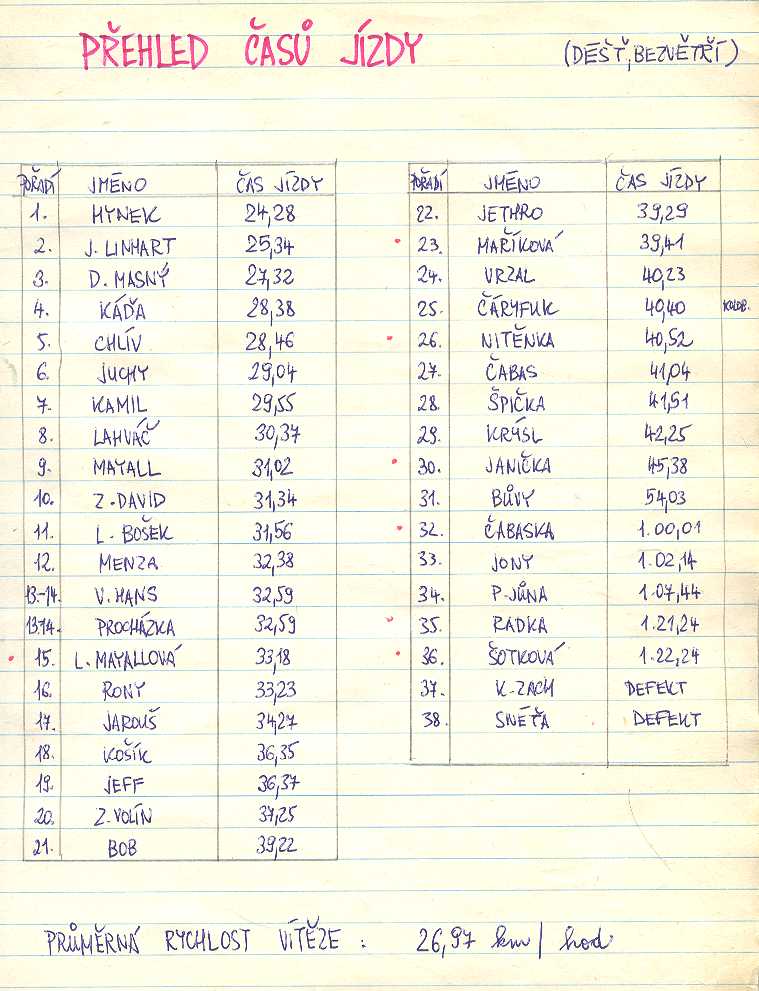 PŘEHLED ČASŮ JÍZDY (DÉŠŤ, BEZVĚTŘÍ)
POŘADÍ JMÉNO ČAS JÍZDY
1. HYNEK 24,28
2. J. LINHART 25,34
3. D. MASNÝ 27,32
4. KÁĎA 28,38
5. CHLÍV 28,46
6. JUCHY 29,04
7. KAMIL 29,55
8. LAHVÁČ 30,37
9. MAYALL 31,02
10. Z. DAVID 31,34
11. L. BOŠEK 31,56
12. MENZA 32,38
13.-14. V. HANS 32,59
13.14. PROCHÁZKA 32,59
15. L. MAYALLOVÁ 33,18
16. RONY 33,23
17. JAROUŠ 34,27
18. KOŠÍK 36,35
19. JEFF 36,37
20. Z. VOLÍN 37,25
21. BOB 39,22
POŘADÍ JMÉNO ČAS JÍZDY
22. JETHRO 39,29
23. MAŘÍKOVÁ 39,41
24. VRZAL 40,23
25. ČÁRYFUK 40,40
26. NITĚNKA 40,52
27. ČABAS 41,04
28. ŠPIČKA 41,51
29. KRÝSL 42,25
30. JANIČKA 45,38
31. BŮVY 54,03
32. ČABASKA 1.00,01
33. JONY 1.02,14
34. P. JŮNA 1.07,44
35. RADKA 1.21,24
36. ŠOTKOVÁ 1.22,24
37. K. ZACH DEFEKT
38. SNĚŤA DEFEKT
PRŮMĚRNÁ RYCHLOST VÍTĚZE : 26,97 km/hod